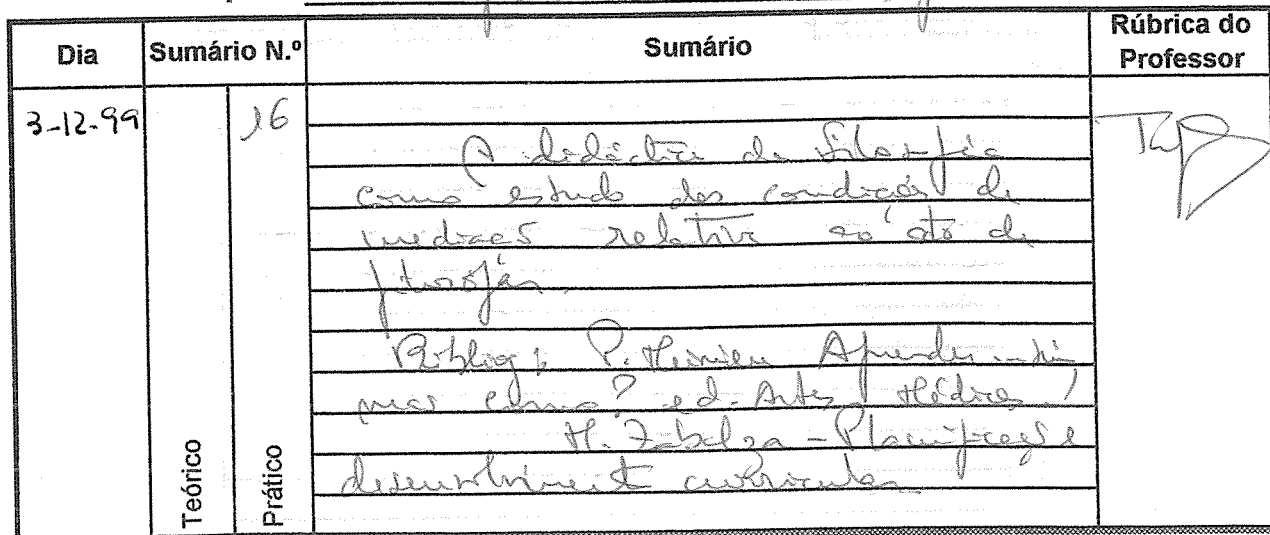 Dia Sumário N.º Sumário Rúbrica do Professor
3-12-99 16
A didáctica da filosofia
como estudo das condições de
mediação relativa ao ato de
filosofar.
Bibliog: P. Meirieu Aprender... sim
mas como? ed. Artes Médicas
M. Zabalza - Planificação e
desenvolvimento curricular
Teórico Prático